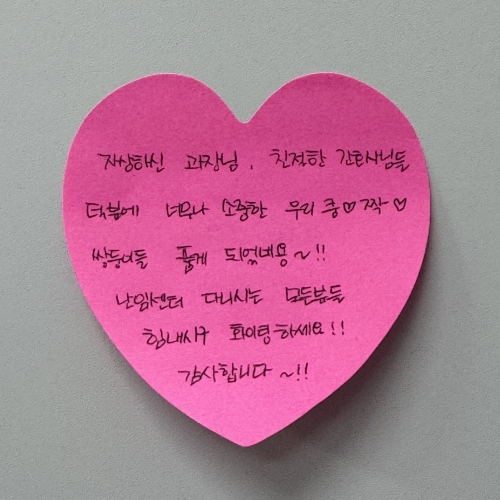 자상하신 과장님, 친절한 간호사님들
덕분에 너무나 소중한 우리 쿵♡짝♡
쌍둥이들 품게 되었네용~!!
난임센터 다니시는 모든분들
힘내시구 화이팅하세요!!
감사합니다~!!